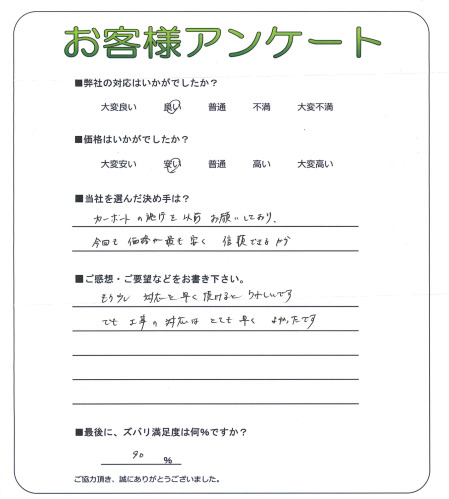 お客様アンケート
■弊社の対応はいかがでしたか？
大変良い 良い 普通 不満 大変不満
■価格はいかがでしたか？
大変安い 安い 普通 高い 大変高い
■当社を選んだ決め手は？
カーポートの施行を以前 お願いしており、
今回も 価格が最も安く 信頼できるから
■ご感想・ご要望などをお書き下さい。
もう少し 対応を早く頂けると うれしいです
でも 工事の対応は とても早く よかったです
■最後に、ズバリ満足度は何％ですか？
90 ％
ご協力頂き、誠にありがとうございました。